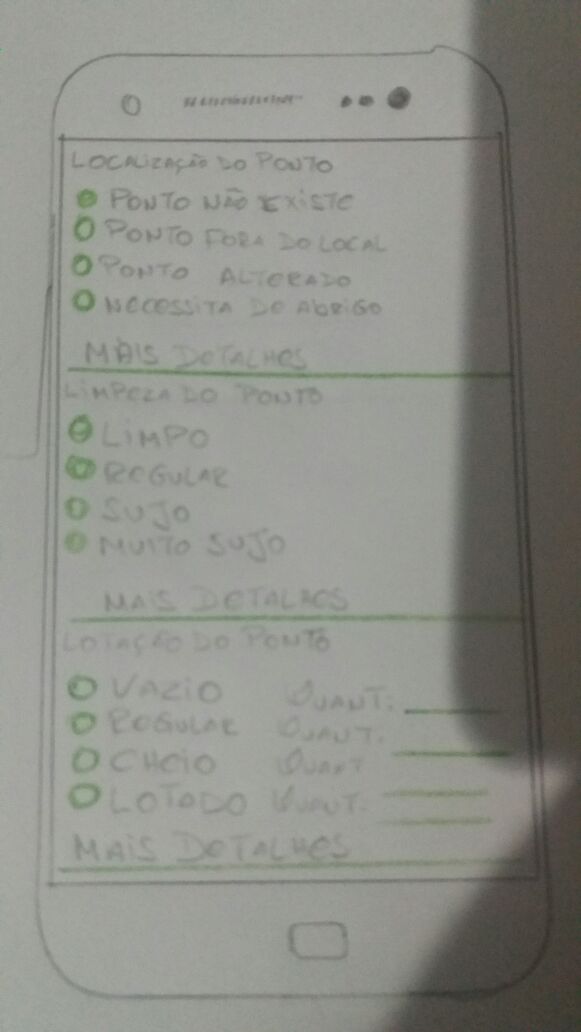 LOCALIZAÇÃO DO PONTO
PONTO NÃO EXISTE
PONTO FORA DO LOCAL
PONTO ALTERADO
NECESSITA DE ABRIGO
MAIS DETALHES
LIMPEZA DO PONTO
LIMPO
REGULAR
SUJO
MUITO SUJO
MAIS DETALHES
LOTAÇÃO DO PONTO
VAZIO QUANT:
REGULAR QUANT.
CHEIO QUANT
LOTADO QUANT.
MAIS DETALHES